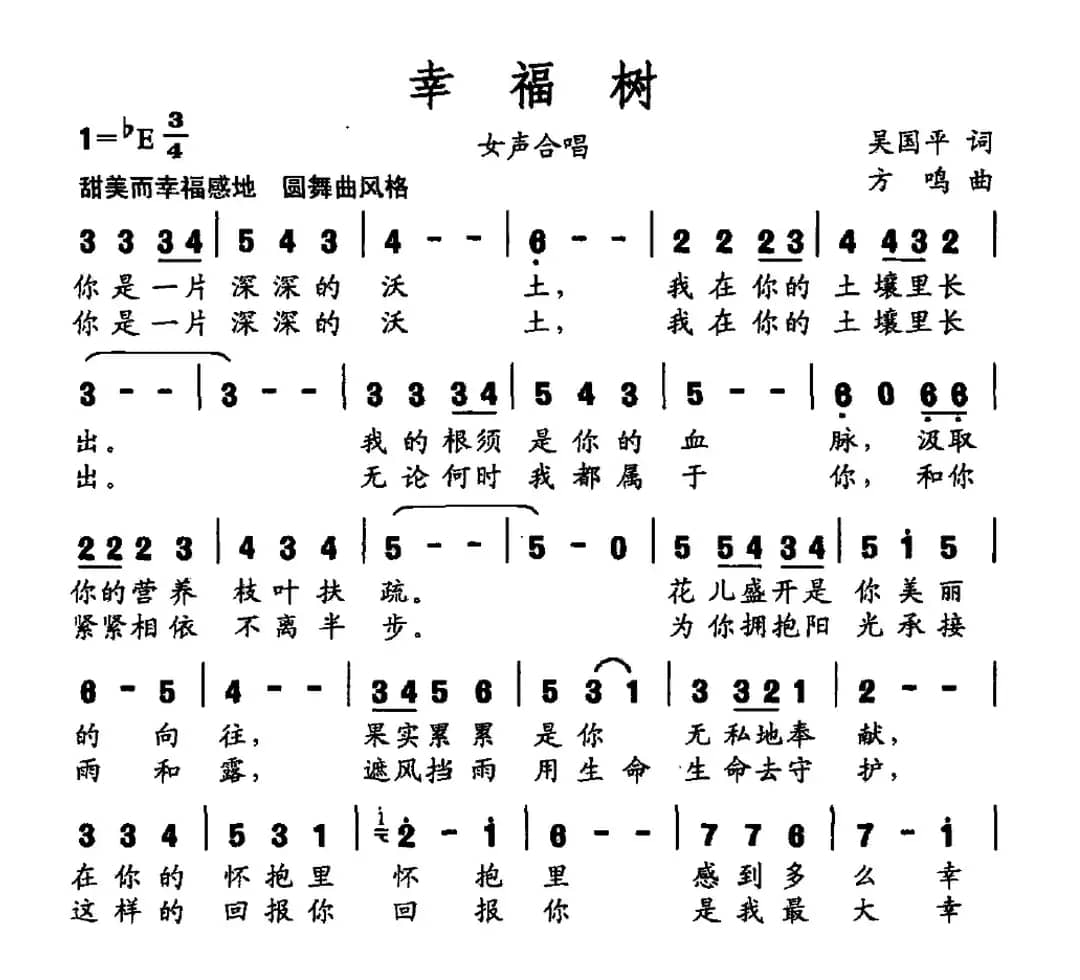 幸 福 树
1=♭E 3/4
女声合唱
吴国平 词
甜美而幸福感地 圆舞曲风格
方 鸣 曲
3 3 3 4 | 5 4 3 | 4 - - | 6 - - | 2 2 2 3 | 4 4 3 2 |
你是一片 深深的 沃 土， 我在你的 土壤里长
你是一片 深深的 沃 土， 我在你的 土壤里长
3 - - | 3 - - | 3 3 3 4 | 5 4 3 | 5 - - | 6 0 6 6 |
出。 我的根须 是你的 血 脉， 汲取
出。 无论何时 我都属 于 你， 和你
2 2 2 3 | 4 3 4 | 5 - - | 5 - 0 | 5 5 4 3 4 | 5 i 5 |
你的营养 枝叶扶 疏。 花儿盛开是 你美丽
紧紧相依 不离半 步。 为你拥抱阳 光承接
6 - 5 | 4 - - | 3 4 5 6 | 5 3 1 | 3 3 2 1 | 2 - - |
的 向 往， 果实累累 是你 无私地奉 献，
雨 和 露， 遮风挡雨 用生命 生命去守 护，
3 3 4 | 5 3 1 | i 2 - i | 6 - - | 7 7 6 | 7 - i |
在你的 怀抱里 怀 抱 里 感到多 么 幸
这样的 回报你 回 报 你 是我最 大 幸